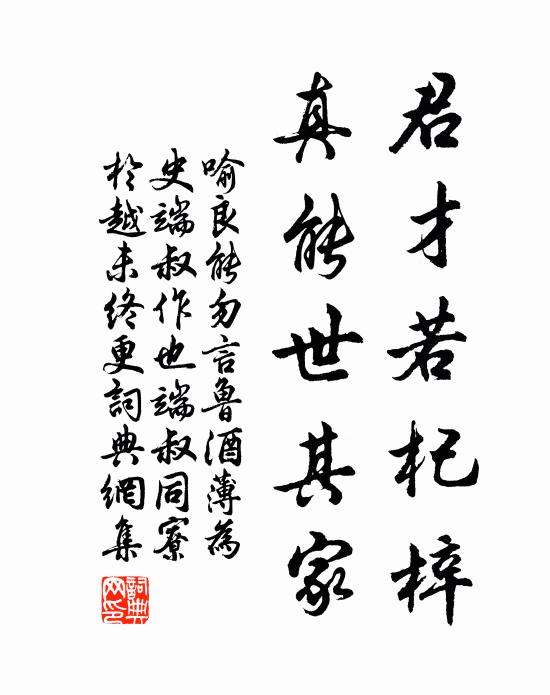 君才若杞梓
真能世其家
喻良能勿言魯酒薄為
史端叔作也端叔同寮
於越未終更詞典網集
詞典網印